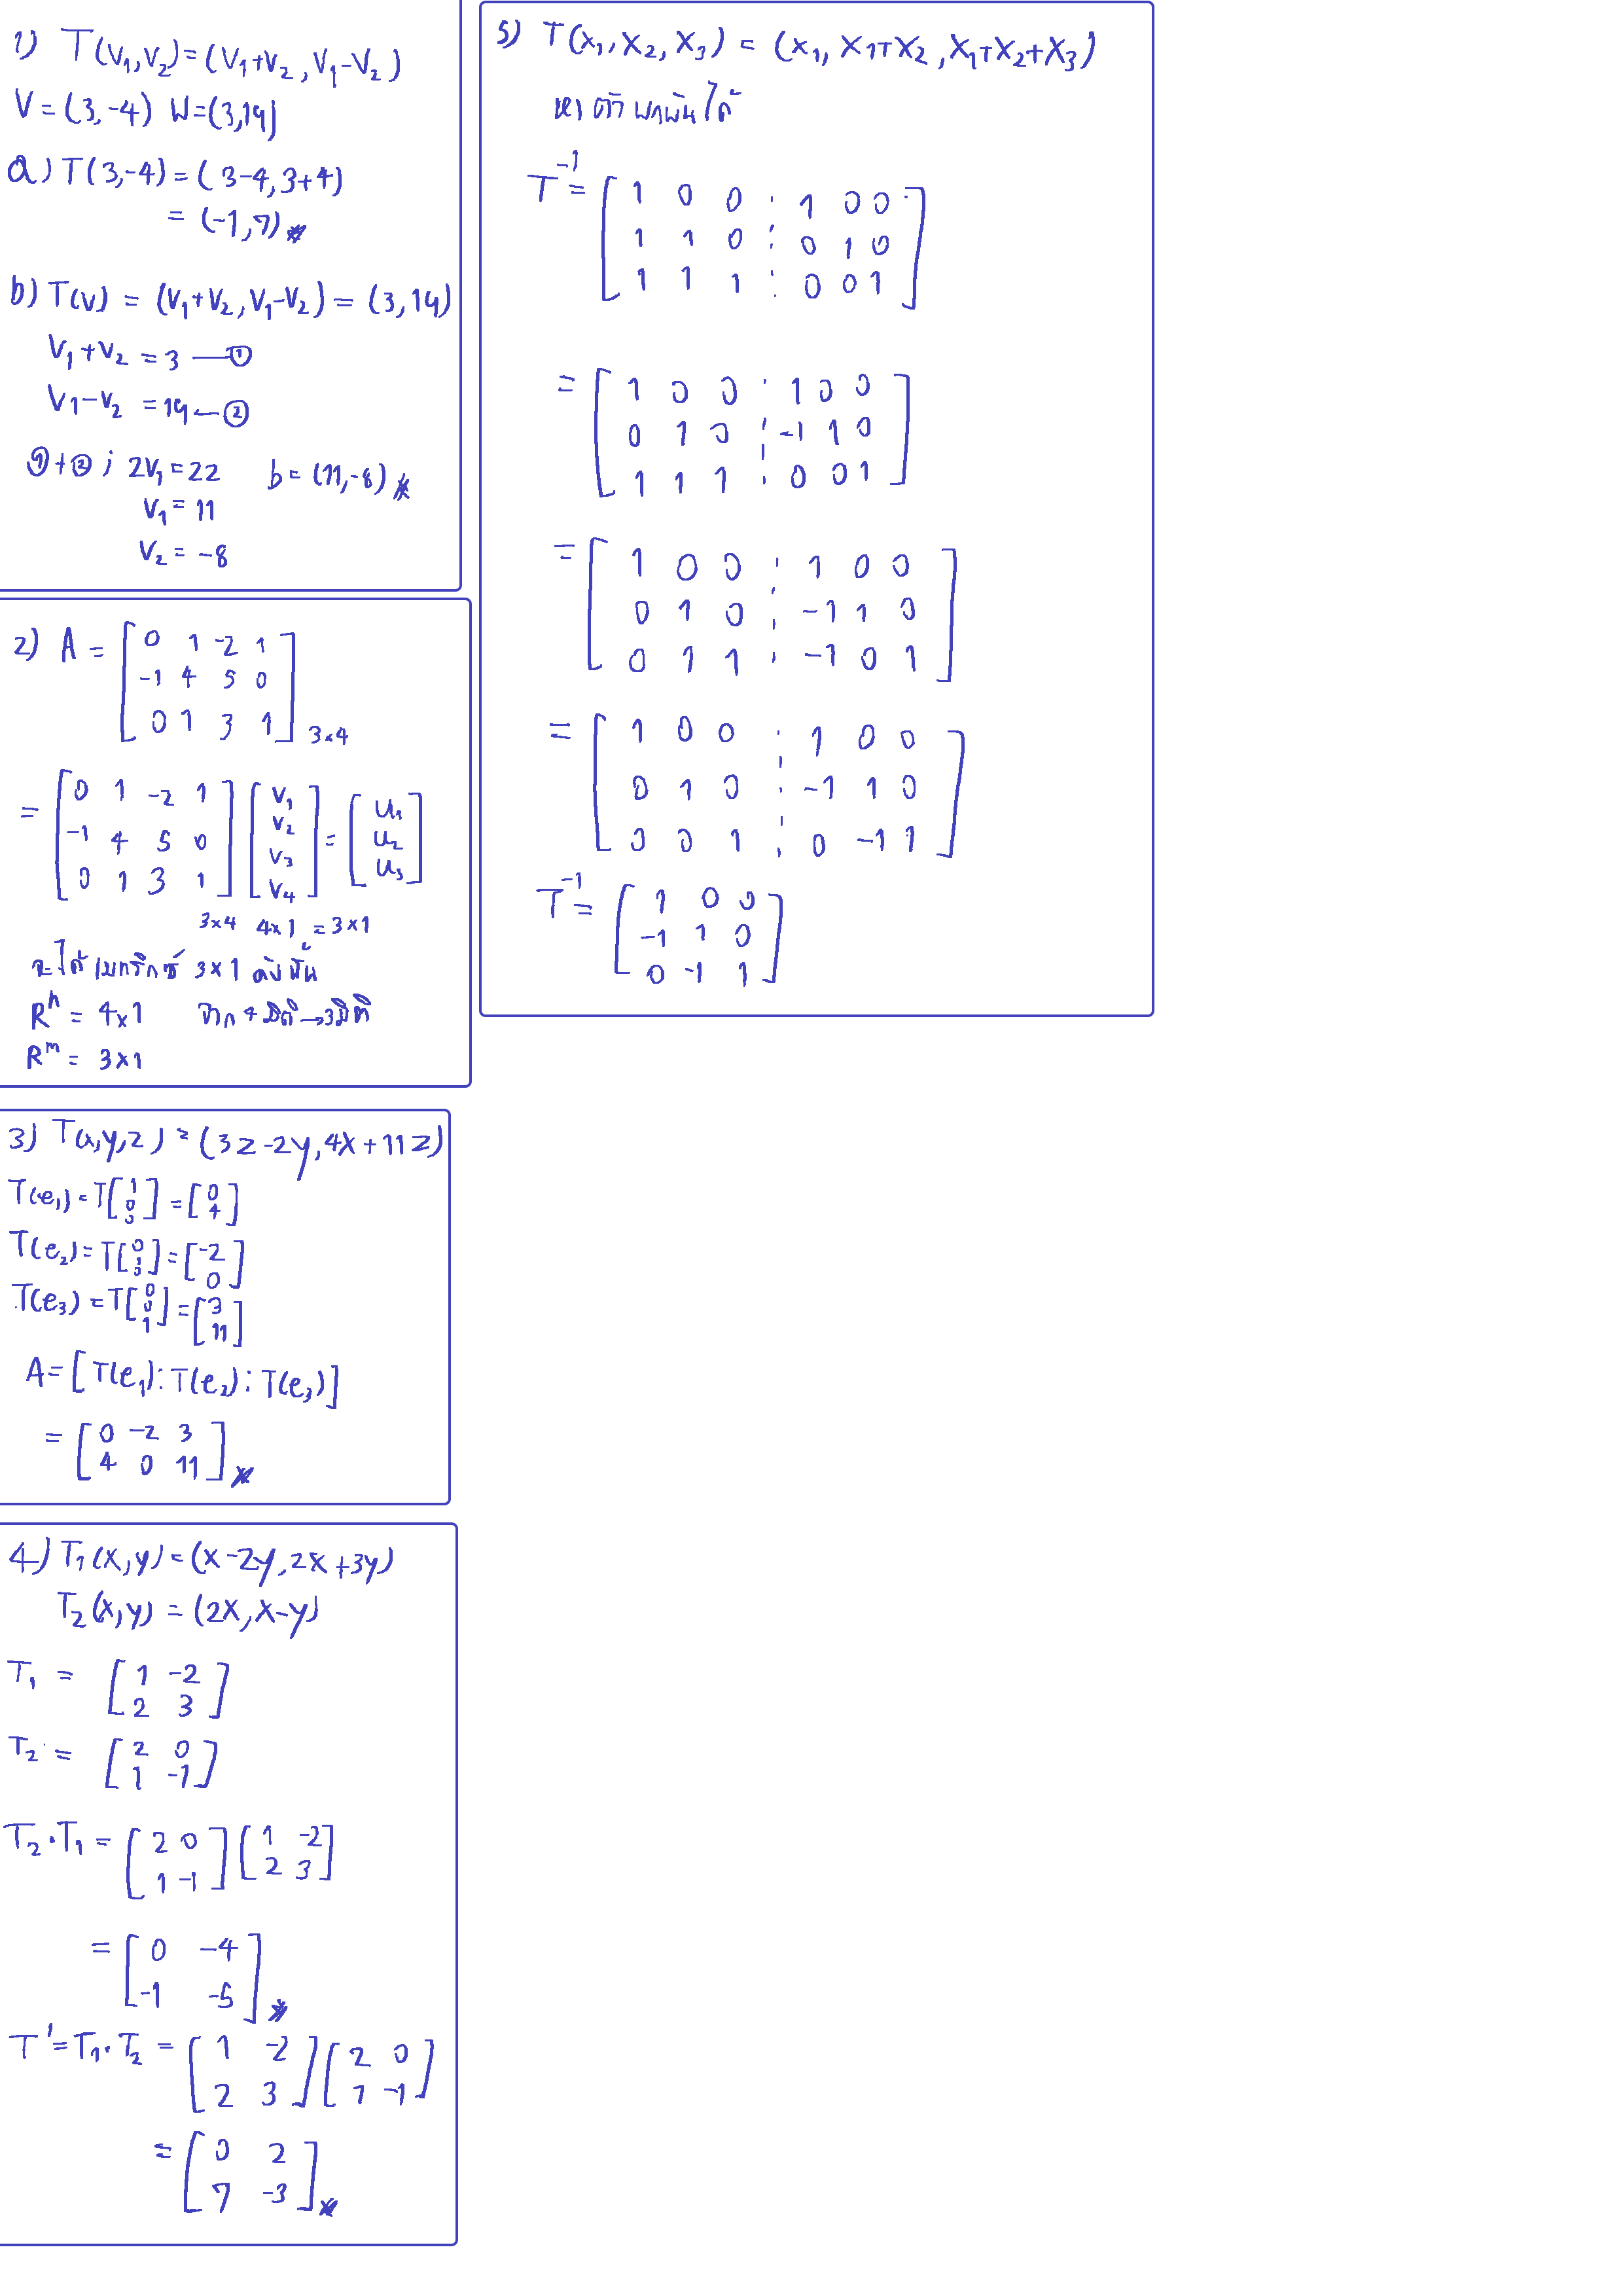 1) T(v₁,v₂)=(v₁+v₂,v₁-v₂)
V=(3,-4) W=(3,19)
a) T(3,-4)=(3-4,3+4)
=(-1,7)
b) T(v) = (v₁+v₂,v₁-v₂)=(3,19)
v₁+v₂ =3 —①
v₁-v₂ =19—②
①+②; 2v₁=22 b=(11,-8)
v₁=11
v₂=-8
2) A = [0 1 -2 1
-1 4 5 0
0 1 3 1] 3×4
= [0 1 -2 1] [v₁] [u₁]
[-1 4 5 0] [v₂] = [u₂]
[0 1 3 1] [v₃] [u₃]
[v₄]
3×4 4×1 =3×1
จะได้เมทริกซ์ 3×1 ดังนั้น
Rⁿ = 4×1 จาก 4 มิติ→3มิติ
Rᵐ = 3×1
3) T(x,y,z) = (3z-2y,4x+11z)
T(e₁)=T[1 0 0]=[0 4]
T(e₂)=T[0 1 0]=[-2 0]
T(e₃)=T[0 0 1]=[3 11]
A=[T(e₁):T(e₂):T(e₃)]
= [0 -2 3
4 0 11]
4) T₁(x,y)=(x-2y,2x+3y)
T₂(x,y) = (2x,x-y)
T₁ = [1 -2
2 3]
T₂ = [2 0
1 -1]
T₂·T₁ = [2 0] [1 -2]
[1 -1] [2 3]
= [0 -4
-1 -5]
T'=T₁·T₂ = [1 -2] [2 0]
[2 3] [1 -1]
= [0 2
7 -3]
5) T(x₁,x₂,x₃) = (x₁,x₁+x₂,x₁+x₂+x₃)
หาตัวผกผันได้
T⁻¹= [1 0 0 : 1 0 0
1 1 0 : 0 1 0
1 1 1 : 0 0 1]
= [1 0 0 : 1 0 0
0 1 0 : -1 1 0
1 1 1 : 0 0 1]
= [1 0 0 : 1 0 0
0 1 0 : -1 1 0
0 1 1 : -1 0 1]
= [1 0 0 : 1 0 0
0 1 0 : -1 1 0
0 0 1 : 0 -1 1]
T⁻¹= [1 0 0
-1 1 0
0 -1 1]